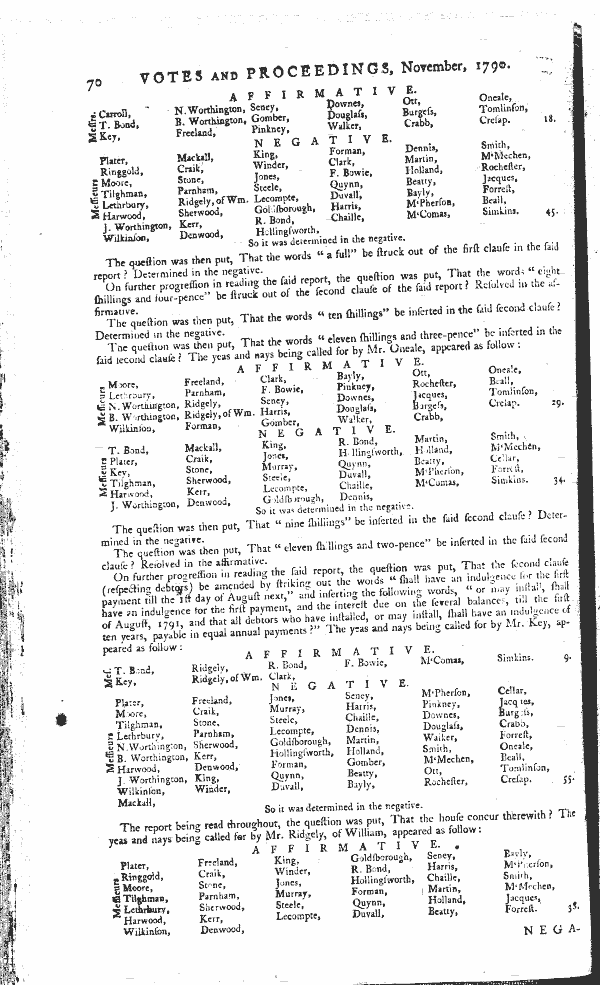 70 VOTES AND PROCEEDINGS, November, 1790.
A F F I R M A T I V E.
Messrs. Carroll, N. Worthington, Seney, Downes, Ott, Oneale,
T. Bond, B. Worthington, Gomber, Douglaſs, Burgeſs, Tomlinſon,
Key, Freeland, Pinkney, Walker, Crabb, Creſap. 18.
N E G A T I V E.
Meſſieurs Plater, Mackall, King, Forman, Dennis, Smith,
Ringgold, Craik, Winder, Clark, Martin, M'Mechen,
Moore, Stone, Jones, F. Bowie, Holland, Rocheſter,
Tilghman, Parnham, Steele, Quynn, Beatty, Jacques,
Lethrbury, Ridgely, of Wm. Lecompte, Duvall, Bayly, Forreſt,
Harwood, Sherwood, Goldſborough, Harris, M'Pherſon, Beall,
J. Worthington, Kerr, R. Bond, Chaille, M'Comas, Simkins. 45.
Wilkinſon, Denwood, Hollingſworth,
So it was determined in the negative.
The queſtion was then put, That the words “ a full” be ſtruck out of the firſt clauſe in the ſaid
report ? Determined in the negative.
On further progreſſion in reading the ſaid report, the queſtion was put, That the words “ eight
ſhillings and four-pence” be ſtruck out of the ſecond clauſe of the ſaid report ? Reſolved in the af-
firmative.
The queſtion was then put, That the words “ ten ſhillings” be inſerted in the ſaid ſecond clauſe ?
Determined in the negative.
The queſtion was then put, That the words “ eleven ſhillings and three-pence” be inſerted in the
ſaid ſecond clauſe ? The yeas and nays being called for by Mr. Oneale, appeared as follow :
A F F I R M A T I V E.
Meſſieurs Moore, Freeland, Clark, Bayly, Ott, Oneale,
Lethrbury, Parnham, F. Bowie, Pinkney, Rocheſter, Beall,
N. Worthington, Ridgely, Seney, Downes, Jacques, Tomlinſon,
B. Worthington, Ridgely, of Wm. Harris, Douglaſs, Burgeſs, Creſap. 29.
Wilkinſon, Forman, Gomber, Walker, Crabb,
N E G A T I V E.
Meſſieurs T. Bond, Mackall, King, R. Bond, Martin, Smith,
Plater, Craik, Jones, Hollingſworth, Holland, M'Mechen,
Key, Stone, Murray, Quynn, Beatty, Cellar,
Tilghman, Sherwood, Steele, Duvall, M'Pherſon, Forreſt,
Harwood, Kerr, Lecompte, Chaille, M'Comas, Simkins. 34.
J. Worthington, Denwood, Goldſborough, Dennis,
So it was determined in the negative.
The queſtion was then put, That “ nine ſhillings” be inſerted in the ſaid ſecond clauſe ? Deter-
mined in the negative.
The queſtion was then put, That “ eleven ſhillings and two-pence” be inſerted in the ſaid ſecond
clauſe ? Reſolved in the affirmative.
On further progreſſion in reading the ſaid report, the queſtion was put, That the ſecond clauſe
(reſpecting debtors) be amended by ſtriking out the words “ ſhall have an indulgence for the firſt
payment till the 1ſt day of Auguſt next,” and inſerting the following words, “ or may inſtall, ſhall
have an indulgence for the firſt payment, and the intereſt due on the ſeveral balances, till the firſt
of Auguſt, 1791, and that all debtors who have inſtalled, or may inſtall, ſhall have an indulgence of
ten years, payable in equal annual payments ?” The yeas and nays being called for by Mr. Key, ap-
peared as follow :
A F F I R M A T I V E.
Meſ. T. Bond, Ridgely, R. Bond, F. Bowie, M'Comas, Simkins. 9.
Key, Ridgely, of Wm. Clark,
N E G A T I V E.
Meſſieurs Plater, Freeland, Jones, Seney, M'Pherſon, Cellar,
Moore, Craik, Murray, Harris, Pinkney, Jacques,
Tilghman, Stone, Steele, Chaille, Downes, Burgeſs,
Lethrbury, Parnham, Lecompte, Dennis, Douglaſs, Crabb,
N. Worthington, Sherwood, Goldſborough, Martin, Walker, Forreſt,
B. Worthington, Kerr, Hollingſworth, Holland, Smith, Oneale,
Harwood, Denwood, Forman, Gomber, M'Mechen, Beall,
J. Worthington, King, Quynn, Beatty, Ott, Tomlinſon,
Wilkinſon, Winder, Duvall, Bayly, Rocheſter, Creſap. 55.
Mackall,
So it was determined in the negative.
The report being read throughout, the queſtion was put, That the houſe concur therewith ? The
yeas and nays being called for by Mr. Ridgely, of William, appeared as follow :
A F F I R M A T I V E.
Meſſieurs Plater, Freeland, King, Goldſborough, Seney, Bayly,
Ringgold, Craik, Winder, R. Bond, Harris, M'Pherſon,
Moore, Stone, Jones, Hollingſworth, Chaille, Smith,
Tilghman, Parnham, Murray, Forman, Martin, M'Mechen,
Lethrbury, Sherwood, Steele, Quynn, Holland, Jacques,
Harwood, Kerr, Lecompte, Duvall, Beatty, Forreſt. 38.
Wilkinſon, Denwood,
N E G A-